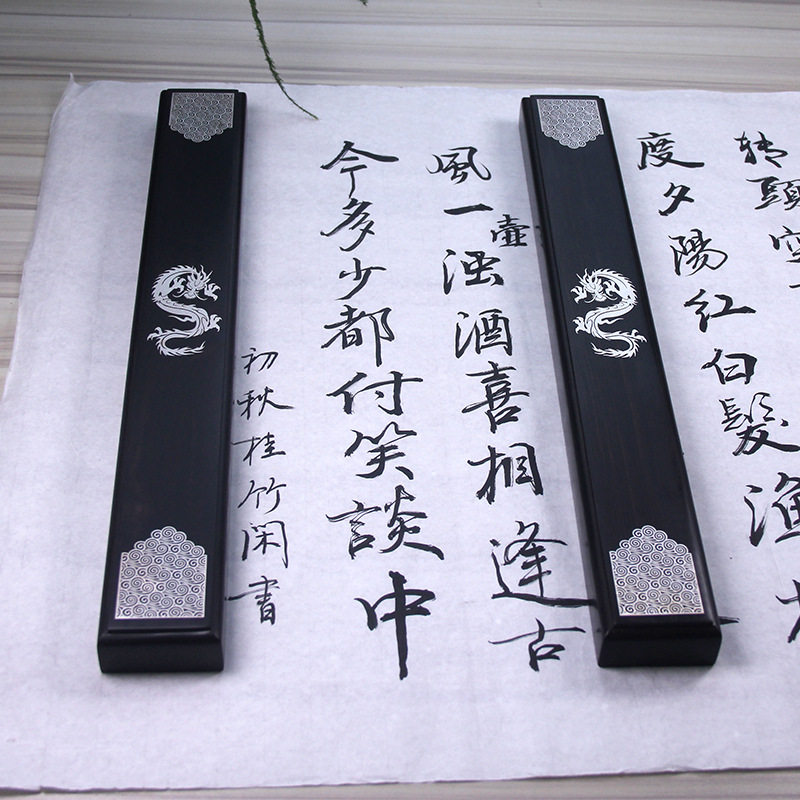 转頭空
度夕陽红白髮漁
風一壺浊酒喜相逢古
今多少都付笑談中
初秋桂竹闲書